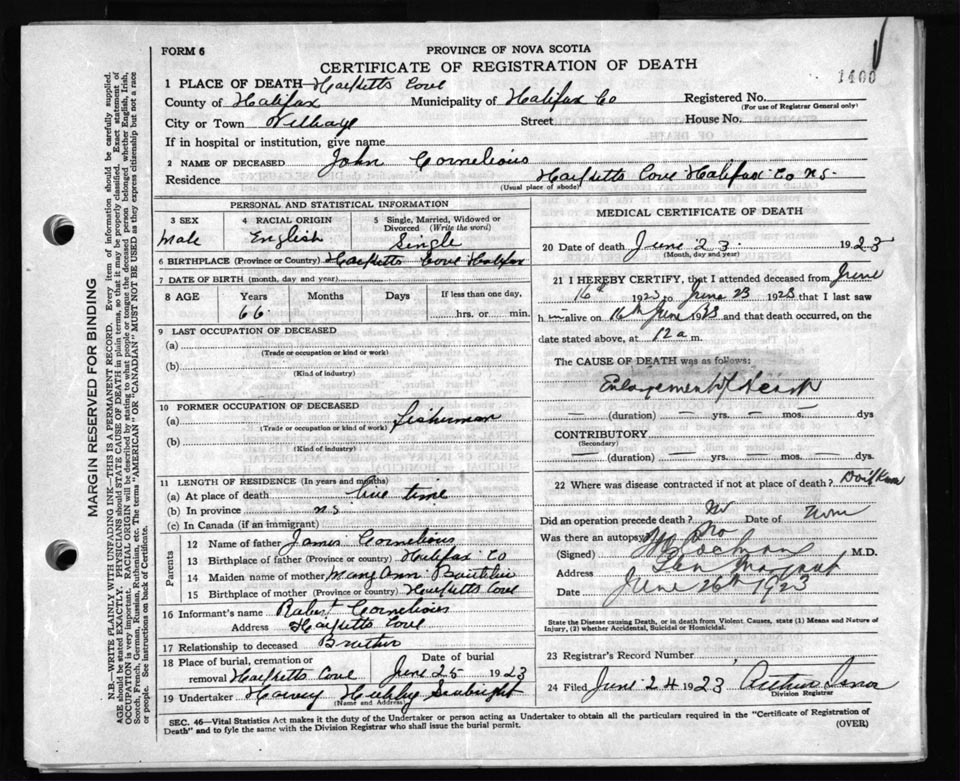 FORM 6
PROVINCE OF NOVA SCOTIA
CERTIFICATE OF REGISTRATION OF DEATH
1400
1 PLACE OF DEATH—Hacketts Cove
County of Halifax Municipality of Halifax Co Registered No.
(For use of Registrar General only)
City or Town Village Street House No.
If in hospital or institution, give name
2 NAME OF DECEASED John Cornelious
Residence Hacketts Cove Halifax Co N.S.
(Usual place of abode)
PERSONAL AND STATISTICAL INFORMATION
3 SEX 4 RACIAL ORIGIN 5 Single, Married, Widowed or Divorced (Write the word)
Male English Single
6 BIRTHPLACE (Province or Country) Hacketts Cove Halifax
7 DATE OF BIRTH (month, day and year)
8 AGE Years Months Days If less than one day,
66 hrs. or min.
9 LAST OCCUPATION OF DECEASED
(a)
(Trade or occupation or kind or work)
(b)
(Kind of industry)
10 FORMER OCCUPATION OF DECEASED
(a) Fisherman
(Trade or occupation or kind of work)
(b)
(Kind of industry)
11 LENGTH OF RESIDENCE (In years and months)
(a) At place of death time
(b) In province N.S
(c) In Canada (if an immigrant)
Parents
12 Name of father James Cornelious
13 Birthplace of father (Province or country) Halifax Co
14 Maiden name of mother Mary Ann
15 Birthplace of mother (Province or country) Hacketts Cove
16 Informant's name Robert Cornelious
Address Hacketts Cove
17 Relationship to deceased Brother
18 Place of burial, cremation or removal Hacketts Cove Date of burial June 25 1923
19 Undertaker Harvey Hubley Seabright
(Name and Address)
MEDICAL CERTIFICATE OF DEATH
20 Date of death June 23 1923
(Month, day and year)
21 I HEREBY CERTIFY, that I attended deceased from June
16th 1923 to June 23 1923 that I last saw
h im alive on 16th June 1923 and that death occurred, on the
date stated above, at 12 a m.
The CAUSE OF DEATH was as follows:
Enlargement of Heart
— (duration) — yrs. — mos. — dys
CONTRIBUTORY
(Secondary)
— (duration) — yrs. — mos. — dys.
22 Where was disease contracted if not at place of death? Don't Know
Did an operation precede death? No Date of
Was there an autopsy? No
(Signed) M.D.
Address
Date June 26th 1923
State the Disease causing Death, or in death from Violent Causes, state (1) Means and Nature of
Injury, (2) whether Accidental, Suicidal or Homicidal.
23 Registrar's Record Number
24 Filed June 24 1923 Arthur
Division Registrar
SEC. 46—Vital Statistics Act makes it the duty of the Undertaker or person acting as Undertaker to obtain all the particulars required in the "Certificate of Registration of
Death" and to fyle the same with the Division Registrar who shall issue the burial permit.
(OVER)
MARGIN RESERVED FOR BINDING
N.B.—WRITE PLAINLY WITH UNFADING INK—THIS IS A PERMANENT RECORD. Every item of information should be carefully supplied.
AGE should be stated EXACTLY. PHYSICIANS should STATE CAUSE OF DEATH in plain terms, so that it may be properly classified. Exact statement of
OCCUPATION is very important. RACIAL ORIGIN will be described by stating to what people or tongue the deceased person belonged whether English, Irish,
Scotch, French, German, Russian, Ruthenian, etc. The terms "AMERICAN" OR "CANADIAN" MUST NOT BE USED as they express citizenship but not a race
or people. See instructions on back of Certificate.